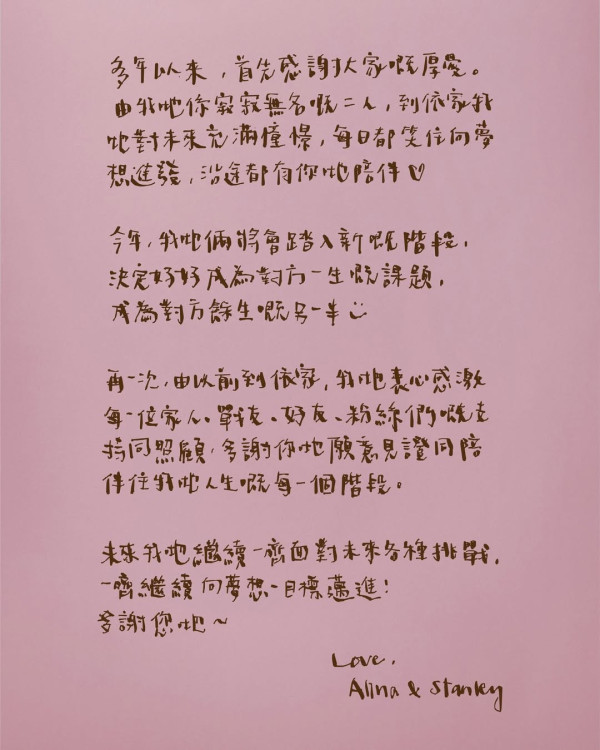 多年以來，首先感謝大家嘅厚愛。
由我哋係寂寂無名嘅二人，到依家我
哋對未來充滿憧憬，每日都笑住向夢
想進發，沿途都有你哋陪伴♡
今年，我哋倆將會踏入新嘅階段，
決定好好成為對方一生嘅課題，
成為對方餘生嘅另一半
再一次，由以前到依家，我哋衷心感激
每一位家人、戰友、好友、粉絲們嘅支
持同照顧，多謝你哋願意見證同陪
伴住我哋人生嘅每一個階段。
未來我哋繼續一齊面對未來各種挑戰，
一齊繼續向夢想一目標邁進！
多謝您哋～
Love,
Alina & Stanley